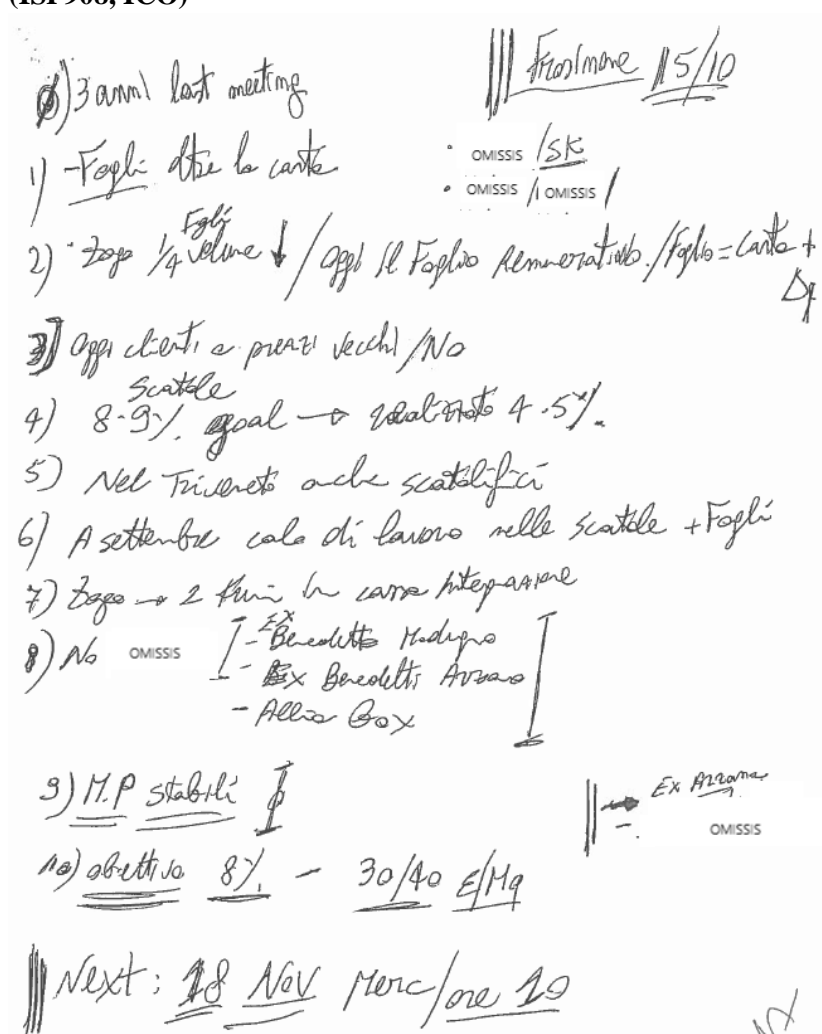 (ISP908, ICO)
Frosinone 15/10
0) 3 anni last meeting
1) - Fogli oltre la carta
• OMISSIS / SK
• OMISSIS / OMISSIS /
2) Zago 1/4 Fogli volume ↓ / oggi il Foglio Remunerativo. / Foglio = Carta +
3) oggi clienti a prezzi vecchi / No
Scatole
4) 8-9% goal → realizzato 4.5%.
5) Nel Triveneto anche scatolifici
6) A settembre calo di lavoro nelle scatole + Fogli
7) Zago → 2 turni in cassa integrazione
8) No OMISSIS
- Ex Benedetti Modugno
- Ex Benedetti Avzano
- Allia Box
9) M.P stabili
Ex Azzano
- OMISSIS
10) obettivo 8% - 30/40 €/Mq
Next: 18 Nov Merc / ore 10